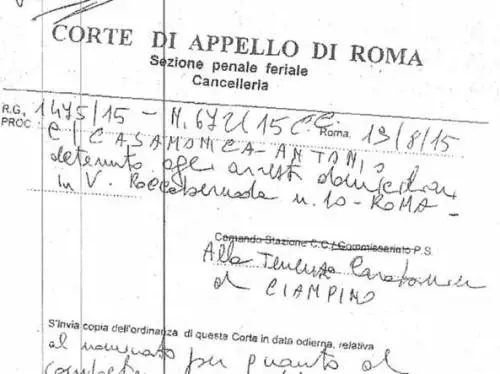 CORTE DI APPELLO DI ROMA
Sezione penale feriale
Cancelleria
R.G. 1475/15 - N. 672/15 C.C. Roma, 13/8/15
PROC. C/ CASAMONICA ANTONIO
detenuto agli arresti domiciliari
in V. Roccabernarda n. 10 - ROMA -
Comando Stazione C.C./Commissariato P.S.
Alla Tenenza Carabinieri
di CIAMPINO
S'invia copia dell'ordinanza di questa Corte in data odierna, relativa
al nominato per quanto di